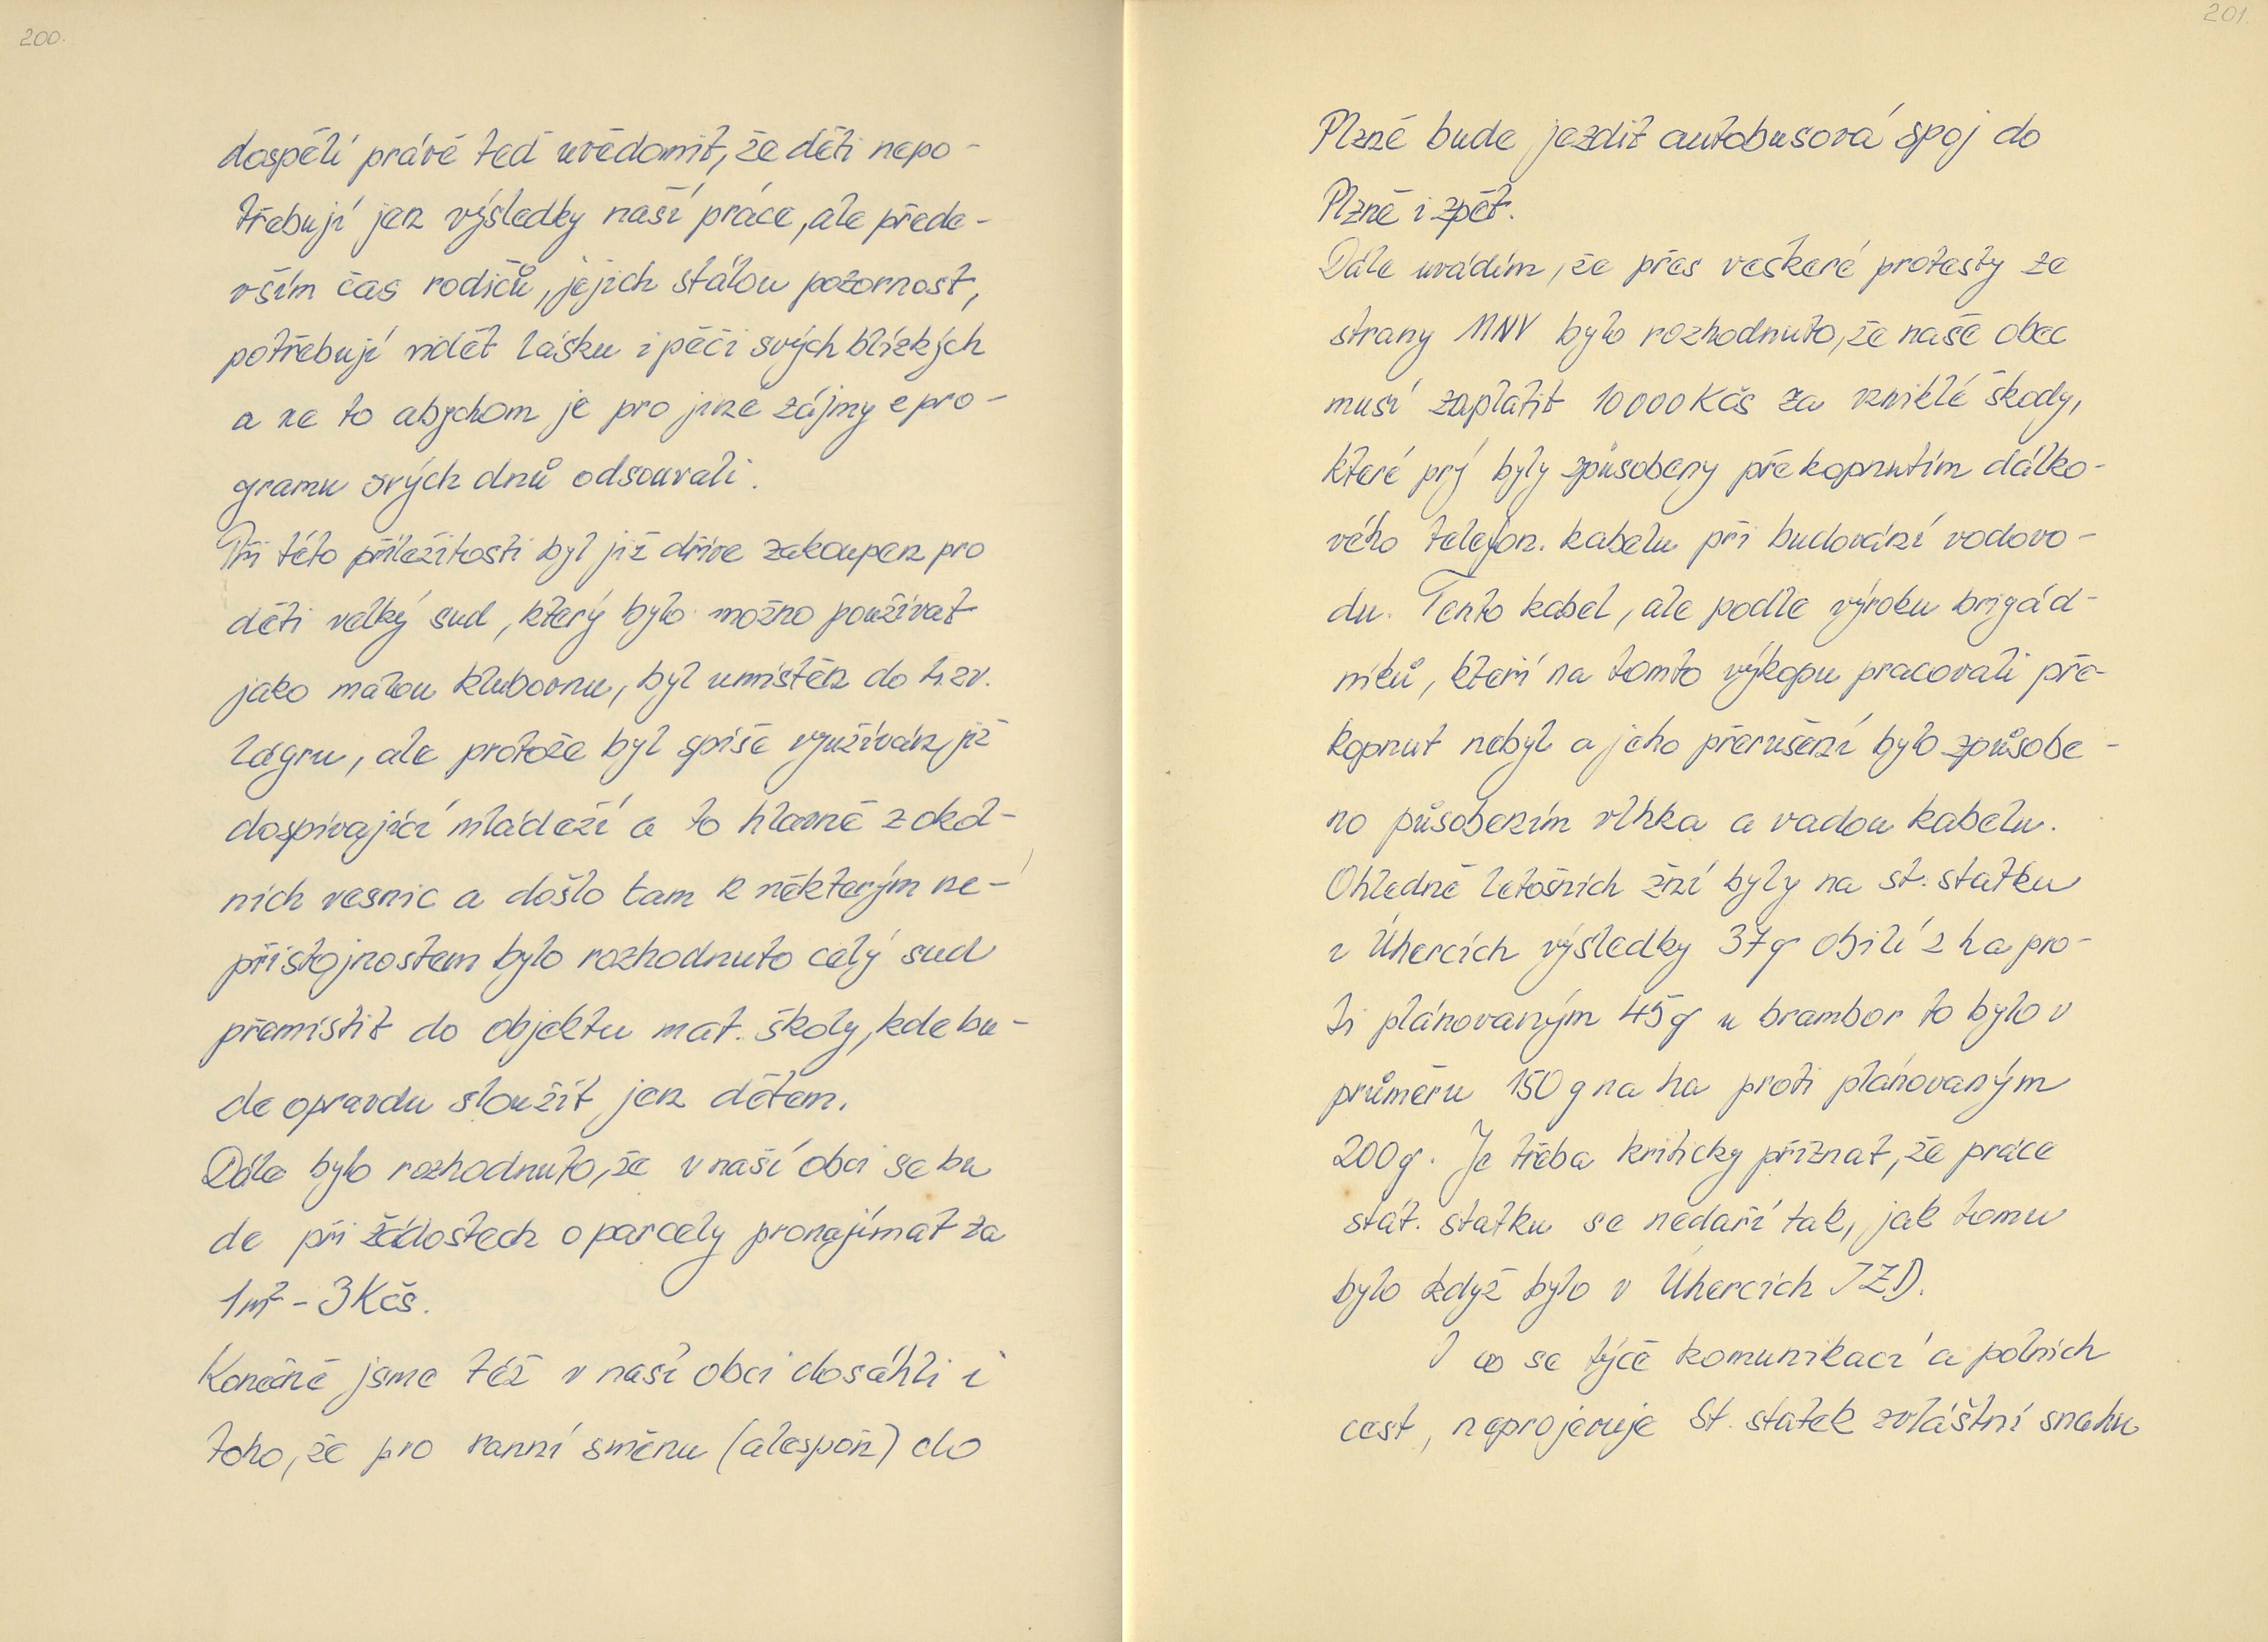 200.
dospělí právě teď uvědomit, že děti nepo-
třebují jen výsledky naší práce, ale přede-
vším čas rodičů, jejich stálou pozornost,
potřebují vidět lásku i péči svých blízkých
a ne to abychom je pro jiné zájmy e pro-
gramu svých dnů odsouvali.
Při této příležitosti byl již dříve zakoupen pro
děti velký sud, který bylo možno používat
jako malou klubovnu, byl umístěn do t. zv.
lágru, ale protože byl spíše využíván již
dospívající mládeží a to hlavně z okol-
ních vesnic a došlo tam k některým ne-
přístojnostem bylo rozhodnuto celý sud
přemístit do objektu mat. školy, kde bu-
de opravdu sloužit jen dětem.
Dále bylo rozhodnuto, že v naší obci se bu
de při žádostech o parcely pronajímat za
1m² - 3 Kčs.
Konečně jsme též v naší obci dosáhli i
toho, že pro ranní směnu (alespoň) do
201.
Plzně bude jezdit autobusová spoj do
Plzně i zpět.
Dále uvádím, že přes veškeré protesty ze
strany MNV bylo rozhodnuto, že naše obec
musí zaplatit 10000 Kčs za vzniklé škody,
které prý byly způsobeny překopnutím dálko-
vého telefon. kabelu při budování vodovo-
du. Tento kabel, ale podle výroku brigád-
níků, kteří na tomto výkopu pracovali pře-
kopnut nebyl a jeho přerušení bylo způsobe-
no působením vlhka a vadou kabelu.
Ohledně letošních žní byly na st. statku
v Úhercích výsledky 37q obilí z ha pro-
ti plánovaným 45q u brambor to bylo v
průměru 150 q na ha proti plánovaným
200q. Je třeba kriticky přiznat, že práce
stát. statku se nedaří tak, jak tomu
bylo když bylo v Úhercích JZD.
I co se týče komunikací a polních
cest, neprojevuje St. statek zvláštní snahu